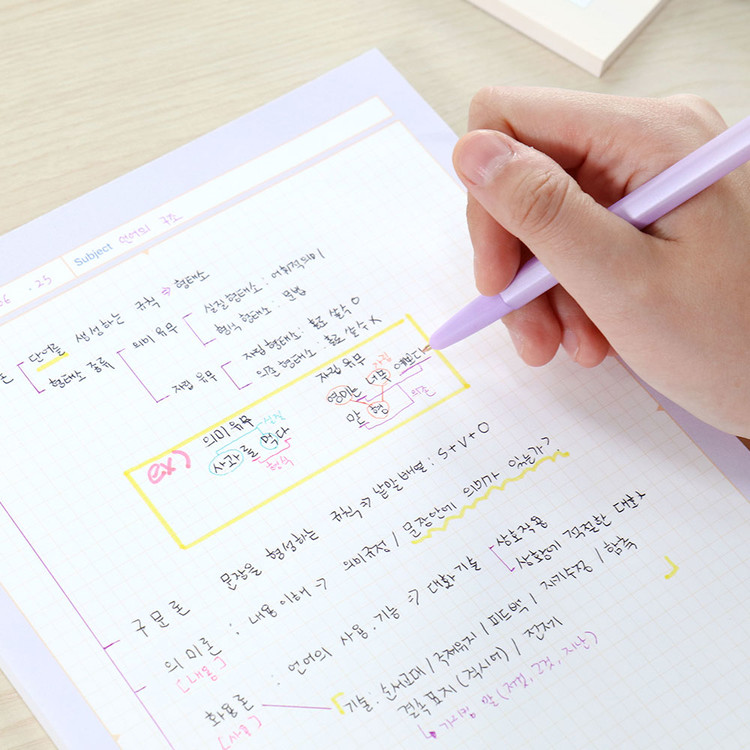 .25 Subject 언어의 구조
단어를 생성하는 규칙 ⇒ 형태소
형태소 종류 의미 유무 실질 형태소 : 어휘적의미
형식 형태소 : 문법
자립 유무 자립 형태소 : 홀로 쓸수 O
의존 형태소 : 홀로 쓸수 X
ex) 의미유무 자립 유무
실질 자립
사과를 먹다 영이는 너무 예쁘다
형식 맏형 의존
구문론 문장을 형성하는 규칙 ⇒ 낱말배열 : S+V+O
의미론 : 내용이해 → 의미규정 / 문장안에 의미가 있는가?
[내용]
화용론 : 언어의 사용·기능 ⇒ 대화기술 상호작용
상황에 적절한 대화
[사용]
기술 : 순서교대 / 주제유지 / 피드백 / 자기수정 / 함축
결속표지 (직시어) / 전제
가리킴 말 (저것, 그것, 지난)